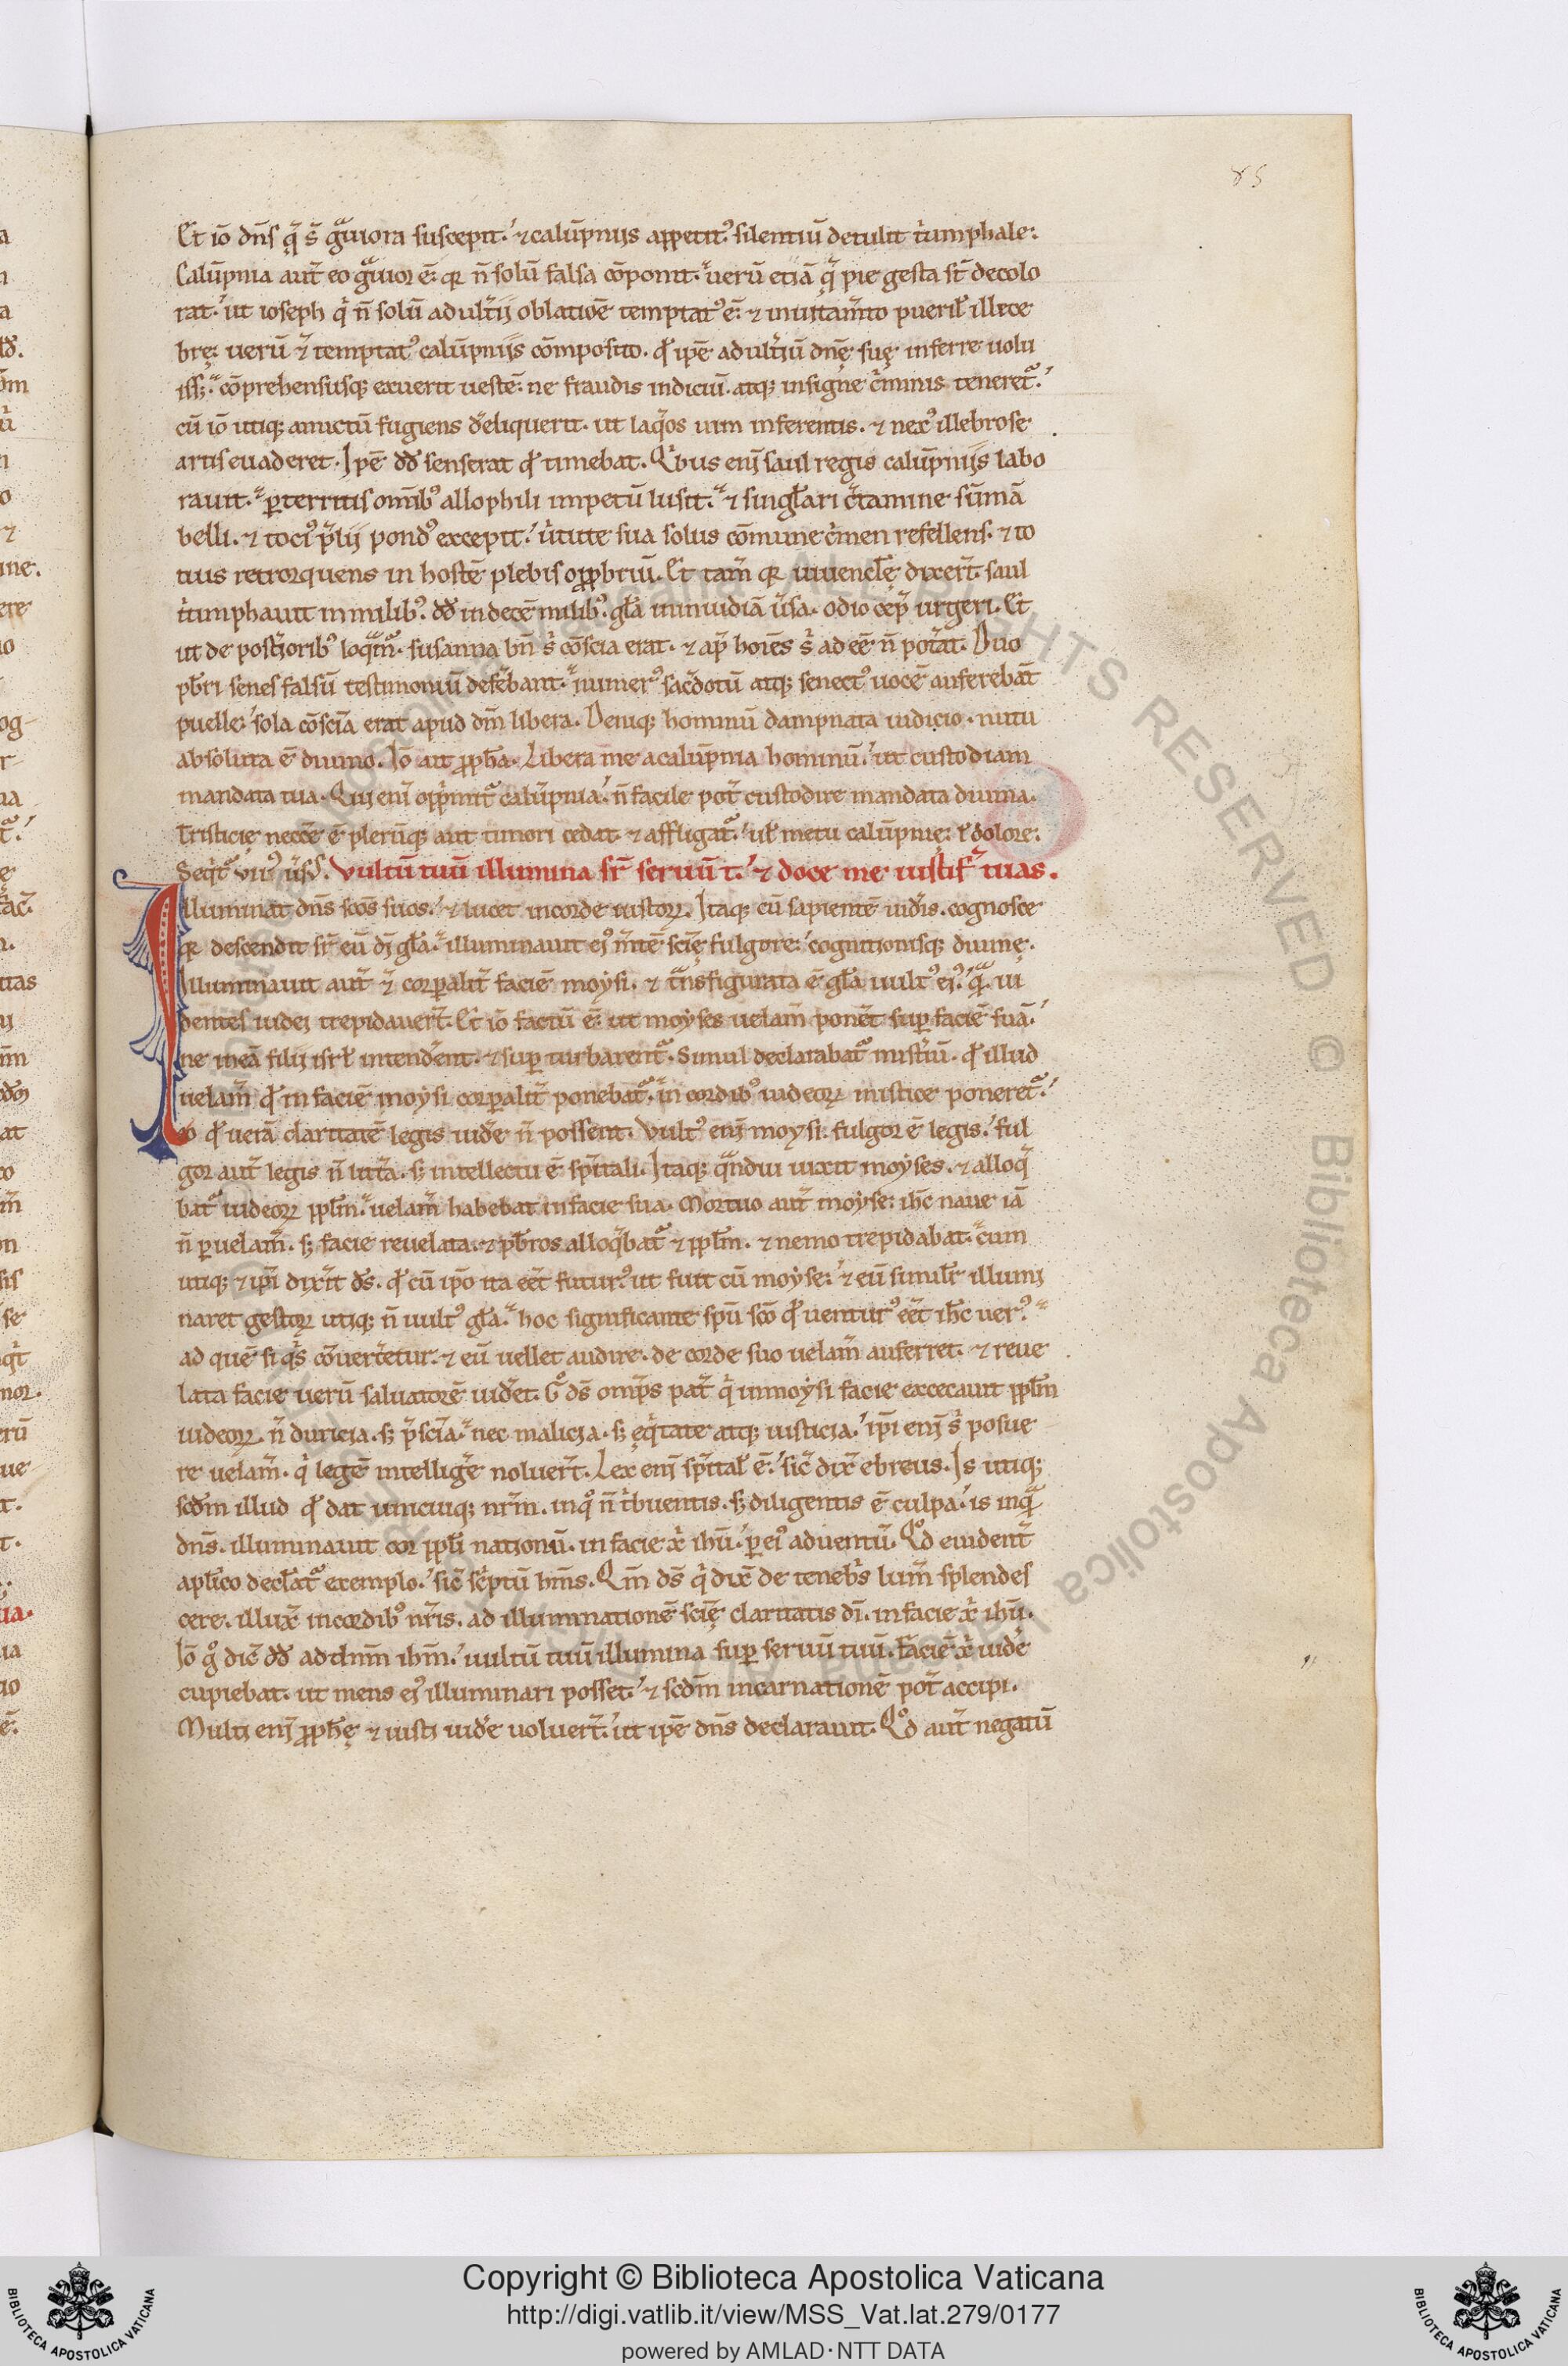 85
Et iō dn̄s q̨ s̄ gͣuiora suscepit. ⁊ calūpnijs appetitꝰ silentiū detulit tⁱumphale:
Calūpnia aut̄ eo gͣuior ē. qr n̄ solū falsa cōponit. uerū etiā q̨ pie gesta st̄ decolo
rat. ut ioseph qⁱ n̄ solū adult̄ij oblatiōe temptatꝰ ē. ⁊ inuitam̄to pueril̄ illece
brę. uerū ⁊ temptatꝰ calūpnijs cōposito. qđ ipē adult̄iū dn̄ę suę inferre uolu
iss;. cōprehensusq; exuerit uestē. ne fraudis indiciū. atq; insigne cⁱminis teneret᷑.
cū iō utiq; amictū fugiens đeliquerit. ut laq̄os uim inferentis. ⁊ nexꝰ illebrose
artis euaderet. Ipē đđ senserat qđ timebat. Qⁱbus enī saul regis calūpnijs labo
rauit. ꝑterritis omībꝰ allophili impetū lusit. ⁊ singl̄ari c̄tamine sūmā
belli. ⁊ tociꝰ p̄lij pondꝰ excepit. uⁱtute sua solus cōmune cⁱmen refellens. ⁊ to
tius retrorquens in hostē plebis opꝓbriū. Et tam̄ qr iuuencl̄ę dixer̄t. saul
tⁱumphauit in milibꝰ. đđ in decē milibꝰ. gl̄a in inuidiā ūsa. odio cęp̄ urgeri. Et
ut de postⁱoribꝰ loqͣm᷑. susanna bn̄ sⁱ cōscia erat. ⁊ ap̄ hoiēs sⁱ ad eē n̄ pot̄at. Duo
pb̄ri senes falsū testimoniū defe᷑bant. numerꝰ sac̄dotū atq; senectꝰ uocē auferebāt
puelle. sola cōsciā erat apud dm̄ libera. Deniq; hominū dampnata iudicio. nutu
absoluta ē diuino. Iō ait ꝓph̄a. Libera me a calūpnia hominū. ut custodiam
mandata tua. Qui enī opp̄mit᷑ calūpnia. n̄ facile pot̄ custodire mandata diuina.
Tristicię neccē ē plerūq; aut timori cedat ⁊ affligat᷑. ul̄ metu calūpnię. ł dolore:
Seqⁱt᷑ .viiꝰ. ūsꝰ. Vultū tuū illumina sr̄ seruū t. ⁊ doce me iustif̄ tuas.
Illuminat dn̄s sc̄os suos. ⁊ lucet in corde iustoꝝ. Itaq; cū sapientē uiđis. cognosce
qr descendit sr̄ eū dī gl̄a. illuminauit eiꝰ m̄tē sciēę fulgore. cognitionisq; diuinę.
Illuminauit aut̄ ⁊ corꝑalit̄ faciē moysi. ⁊ tͣnsfigurata ē gl̄a uultꝰ eiꝰ. qͣ ui
dentes iudei trepidauer̄t. Et iō factū ē. ut moyses uelam̄ ponēt suꝑ faciē suā.
ne ineā filij isrl̄ intenđent. ⁊ suꝑ turbarent᷑. Simul declarabat᷑ mist̄iū. qđ illud
uelam̄ qđ in faciē moysi corꝑalit̄ ponebat᷑. in cordibꝰ iudeoꝝ mistice poneret᷑.
eo qđ uerā claritatē legis uiđe n̄ possent. Vultꝰ enī moysi. fulgor ē legis. ful
gor aut̄ legis n̄ litt̄a. s; intellectu ē sp̄itali. Itaq; qͣndiu uixit moyses. ⁊ alloq̄
bat᷑ iudeoꝝ ppl̄m. uelam̄ habebat in facie sua. Mortuo aut̄ moyse. ihc̄ naue iā
n̄ ꝑ uelam̄. s; facie reuelata. ⁊ pb̄ros alloq̄bat᷑ ⁊ ppl̄m. ⁊ nemo trepidabat. cum
utiq; ⁊ ipī dixit đs. qđ cū ipō ita eēt futurꝰ ut fuit cū moyse. ⁊ eū simil̄r illumi
naret gestoꝝ utiq; n̄ uultꝰ gl̄a. hoc significante spū sc̄o qđ uenturꝰ eēt ih̄c uerꝰ
ad quē si qⁱs cōuertetur. ⁊ eū uellet audire. de corde suo uelam̄ auferret. ⁊ reue
lata facie uerū saluatorē uiđet. Gͦ ds̄ omp̄s pat̄ qⁱ in moysi facie excecauit ppl̄m
iudeoꝝ. n̄ duricia. s; p̄scīa. nec malicia. s; ęqⁱtate atq; iusticia. ipī enī sⁱ posue
re uelam̄. qⁱ legē intelliḡe noluer̄t. Lex enī sp̄ital̄ ē. sic̄ dix̄ ebreus. Is utiq;
scđm illud qđ dat unicuiq; nr̄m. inqͦ n̄ tⁱbuentis. s; diligentis ē culpa. is inqͣ
dn̄s. illuminauit cor ppl̄i nationū. in facie xⁱ ihū. ꝑ eiꝰ aduentū. Qͦd euident̄
apl̄ico decl̄at᷑ exemplo. sic̄ sc̄ptū hm̄s. Qm̄ ds̄ qⁱ dix̄ de tenebⁱs lum̄ splendes
cere. illux̄ in cordibꝰ nr̄is. ad illuminationē sciēę claritatis dī. in facie xⁱ ihū.
Iō gͦ dic̄ đđ ad dnm̄ ihm̄. uultū tuū illumina suꝑ seruū tuū. faciē xⁱ uiđe
cupiebat. ut mens eiꝰ illuminari posset. ⁊ scđm incarnationē pot̄ accipi.
Multi enī ꝓph̄ę ⁊ iusti uiđe uoluer̄t. ut ipē dn̄s declarauit. Qͦd aut̄ negatū
Copyright © Biblioteca Apostolica Vaticana
http://digi.vatlib.it/view/MSS_Vat.lat.279/0177
powered by AMLAD·NTT DATA
BIBLIOTECA APOSTOLICA VATICANA
BIBLIOTECA APOSTOLICA VATICANA